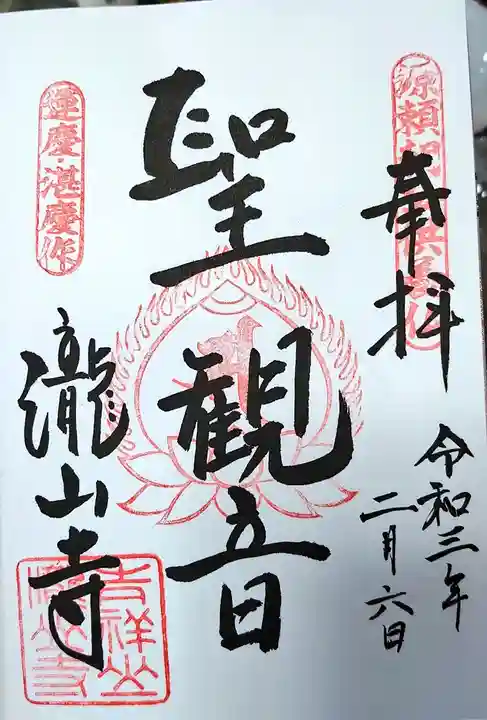 奉拝
令和三年
二月六日
聖観音
運慶・湛慶作
瀧山寺
吉祥山
瀧山寺